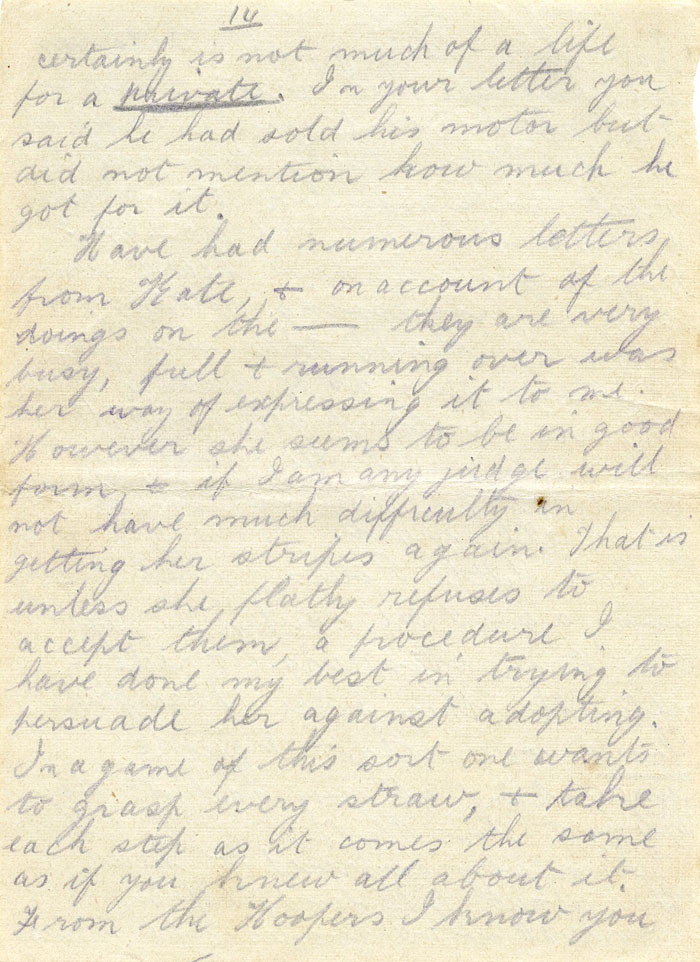 14
certainly is not much of a life
for a private. In your letter you
said he had sold his motor but
did not mention how much he
got for it.
Have had numerous letters
from Kate, + on account of the
doings on the — they are very
busy, full + running over was
her way of expressing it to me.
However she seems to be in good
form, + if I am any judge will
not have much difficulty in
getting her stripes again. That is
unless she flatly refuses to
accept them, a procedure I
have done my best in trying to
persuade her against adopting.
In a game of this sort one wants
to grasp every straw, + take
each step as it comes the same
as if you knew all about it.
From the Hoopers I know you